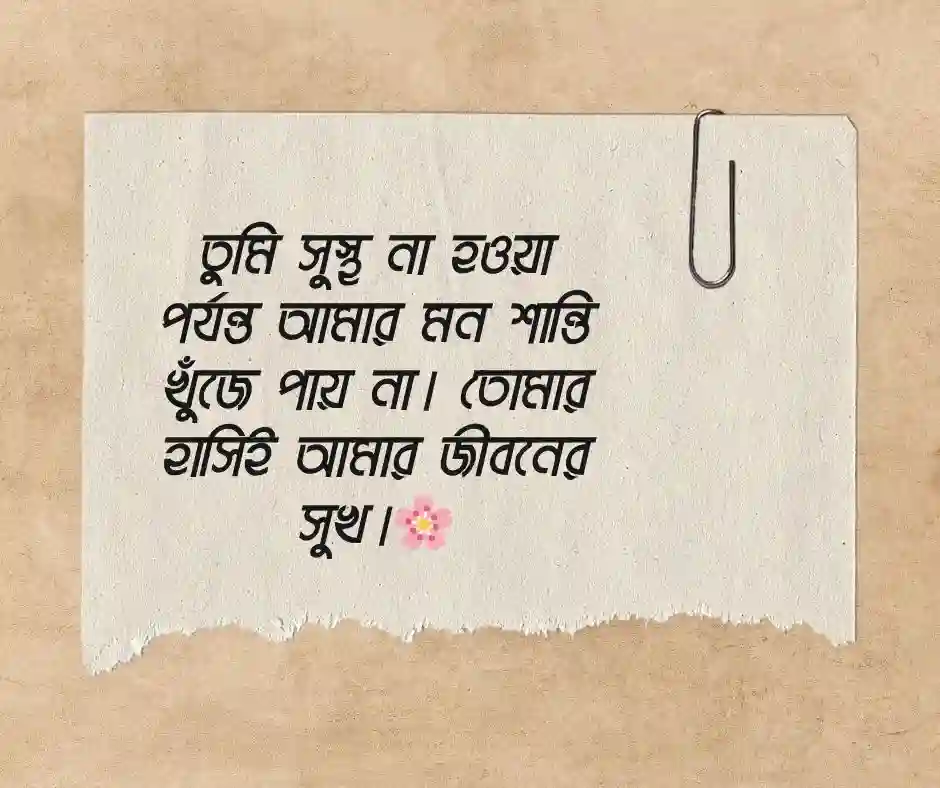 তুমি সুস্থ না হওয়া
পর্যন্ত আমার মন শান্তি
খুঁজে পায় না। তোমার
হাসিই আমার জীবনের
সুখ।🌸